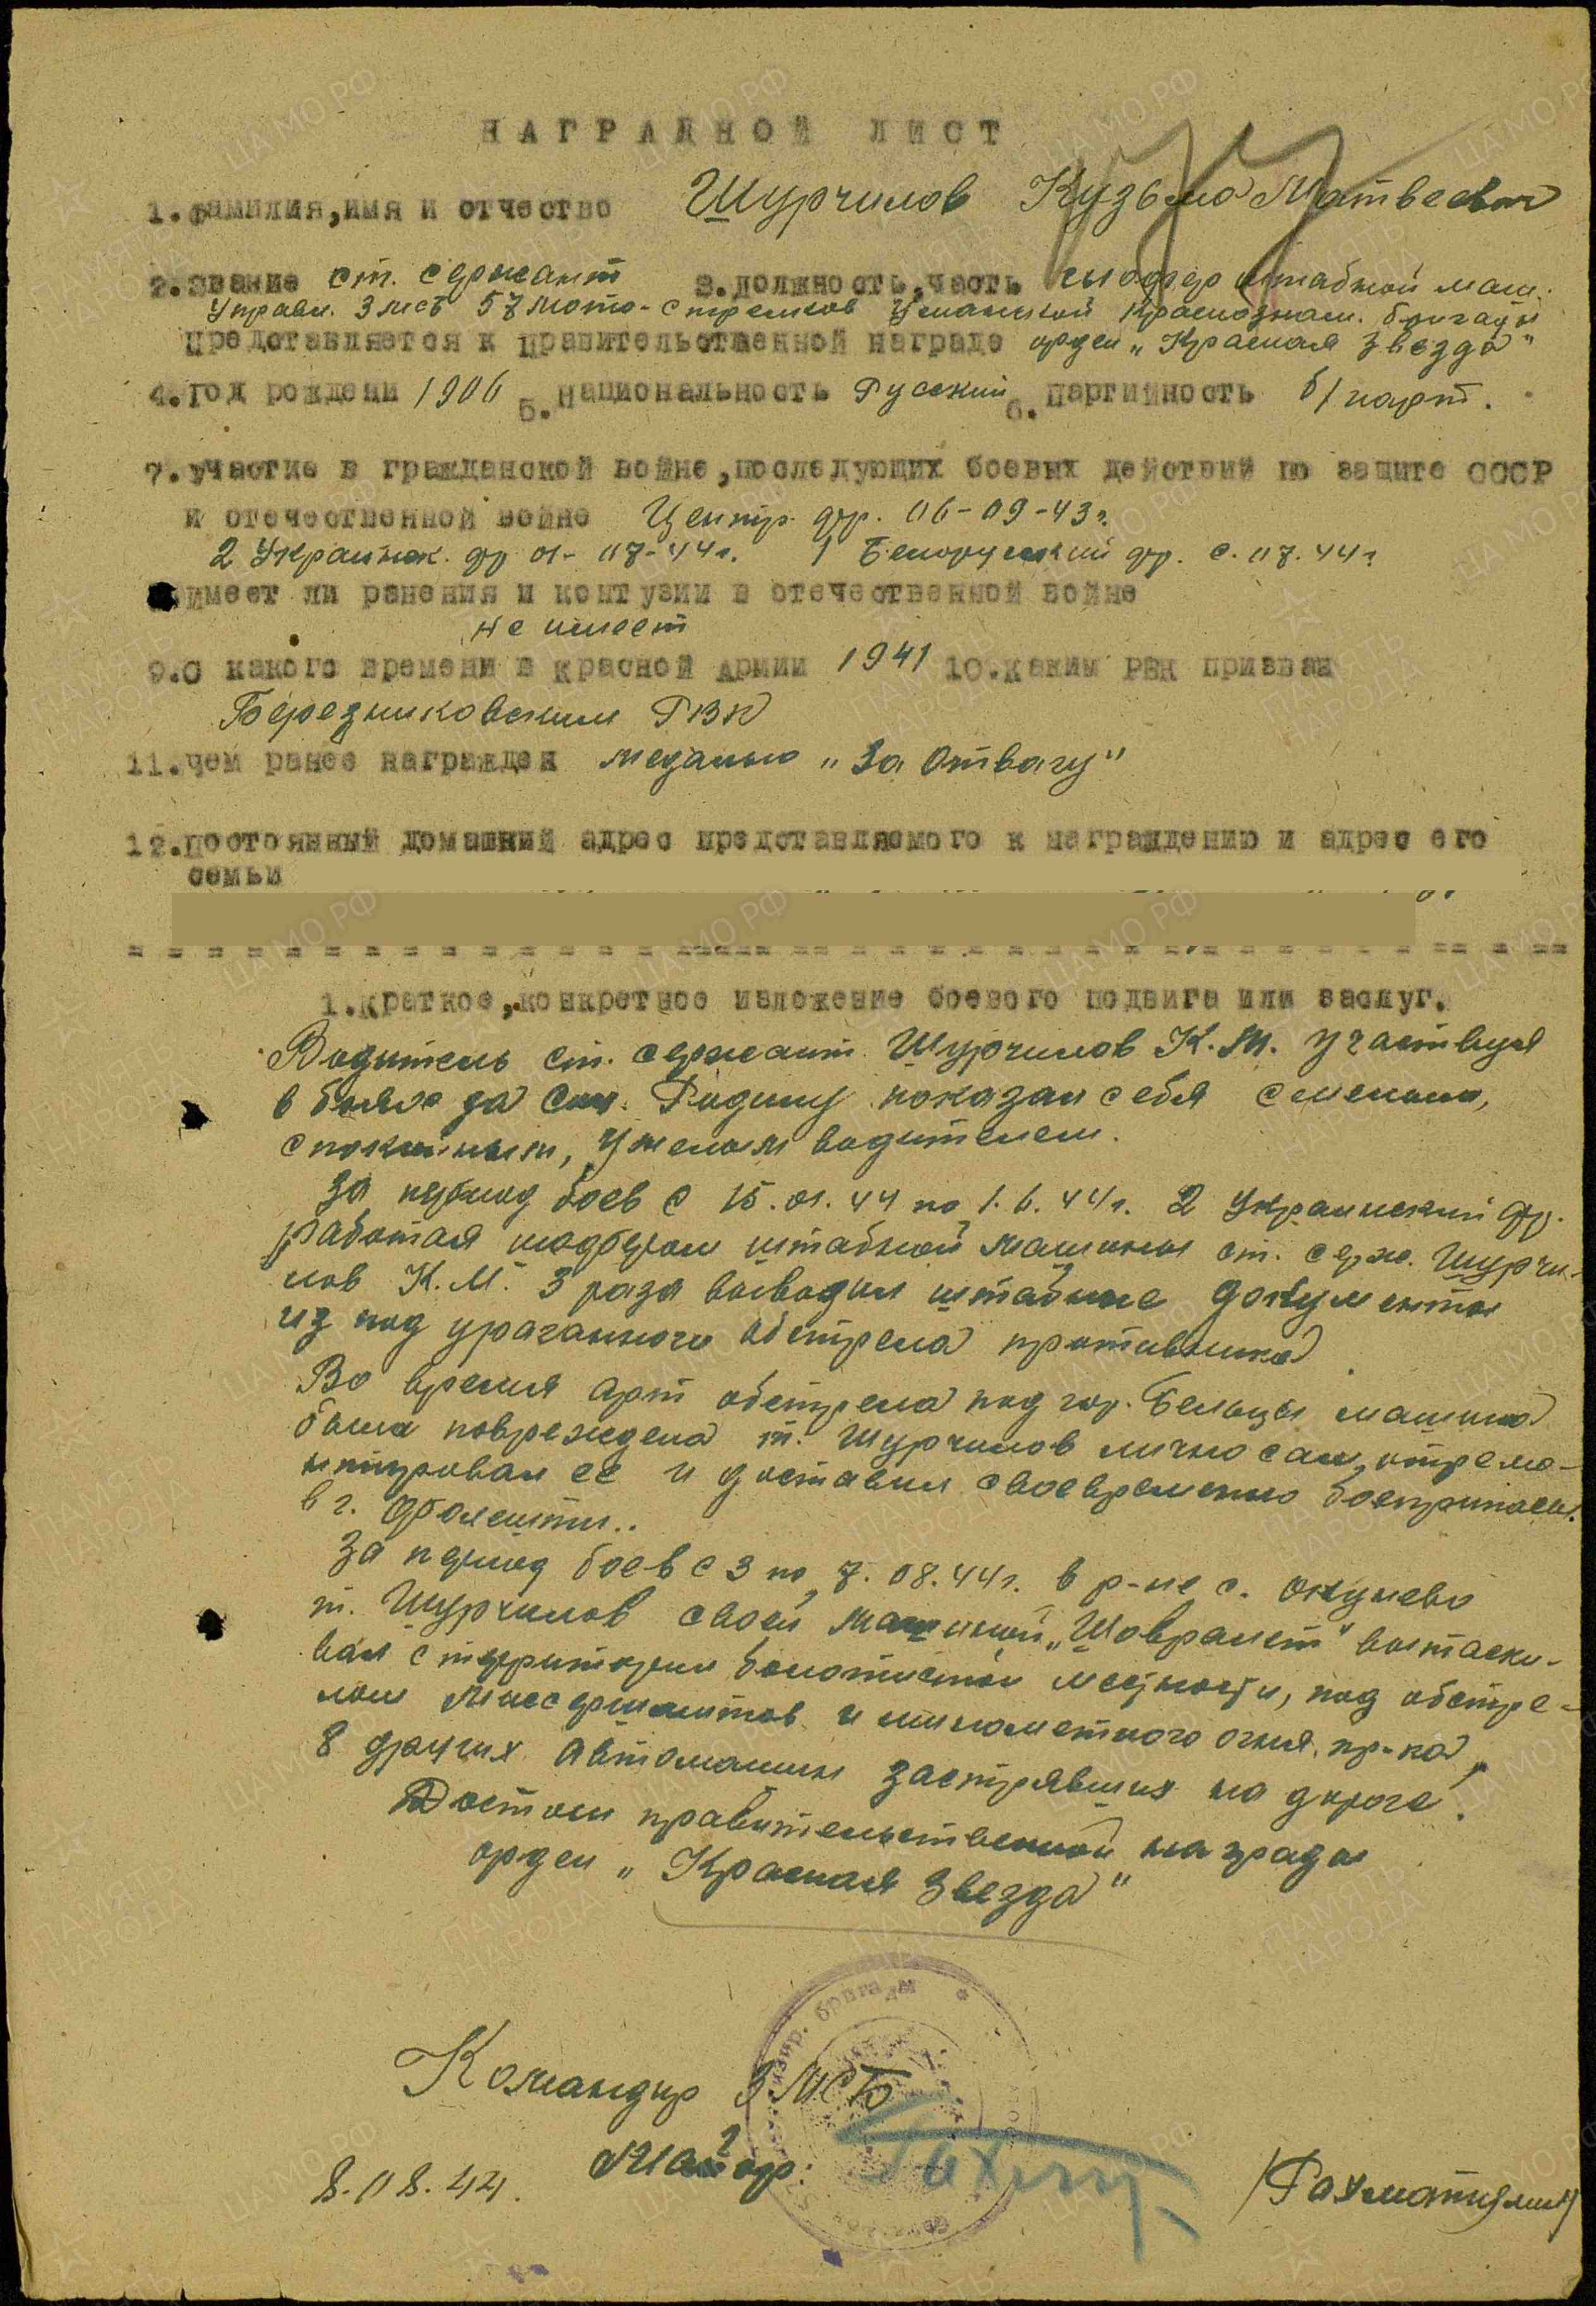 НАГРАДНОЙ ЛИСТ
1.Фамилия,имя и отчество Шурчилов Кузьма Матвеевич
2.Звание ст. сержант 3.должность,часть шофер штабной маш.
Управл. 3 мсб 57 мото-стрелков Уманской Краснознам. бригады
Представляется к Правительственной награде орден „Красная звезда"
4.Год рождени 1906 5.Национальность Русский 6.Партийность б/парт.
7.Участие в гражданской войне,последующих боевых действий по защите СССР
и отечественной войне Центр. фр. 06-09-43г.
2 Украинск. фр 01-07-44г. 1 Белорусский фр. с. 07.44г
имеет ли ранения и контузии в отечественной войне
не имеет
9.С какого времени в Красной Армии 1941 10.Каким РВК призван
Березниковским ГВК
11.чем ранее награжден медалью „За Отвагу"
12.Постоянный домашний адрес представляемого к награждению и адрес его
семьи
1.Краткое,конкретное изложение боевого подвига или заслуг.
Водитель ст. сержант Шурчилов К.М. участвуя
в боях за Соц. Родину показал себя смелым,
спокойным, умелым водителем.
За период боев с 15.01.44 по 1.6.44г. 2 Украинский фр.
работая шофером штабной машины ст. серж. Шурчи-
лов К.М. 3 раза вывозил штабные документы
из под ураганного обстрела противника
Во время арт обстрела под гор. Бельцы машина
была повреждена т. Шурчилов лично сам отремо-
нтировал ее и доставил своевременно боеприпасы
в г. Фолешты..
За период боев с 3 по 7.08.44г. в р-не с. Окунево
т. Шурчилов своей машиной „Шовралет" вытаски-
вал с территории болотистой местности, под обстре-
лом Мессершмитов и минометного огня пр-ка,
8 других автомашин застрявших на дороге.
Достоин правительственной награды
орден „Красная Звезда"
бригады
Командир 3 МСБ
Майор
8.08.44.
/Рахматулин/
ЦАМО РФ
ПАМЯТЬ НАРОДА